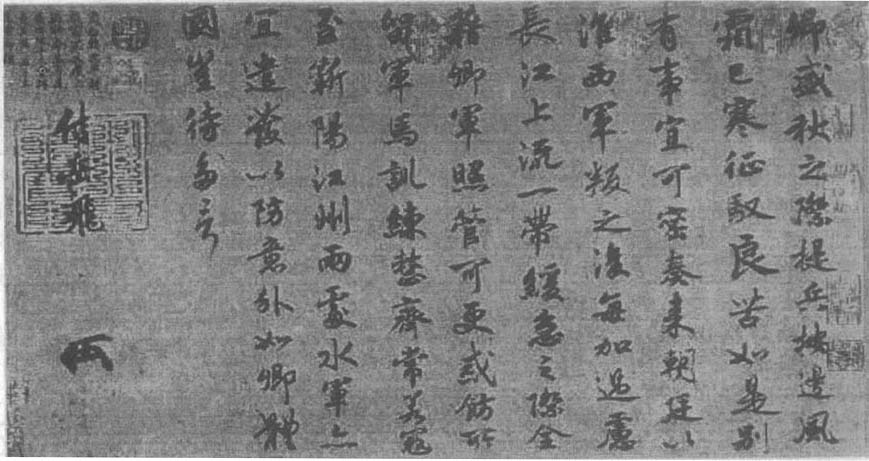 卿盛秋之際提兵按邊風
霜已寒征馭良苦如是别
有事宜可密奏来朝廷以
淮西軍叛之後每加過慮
長江上流一帶緩急之際全
藉卿軍照管可更戒飭所
留軍馬訓練整齊常若寇
至蘄陽江州兩處水軍亦
宜遣發以防意外如卿體
國豈待多言
付岳飛